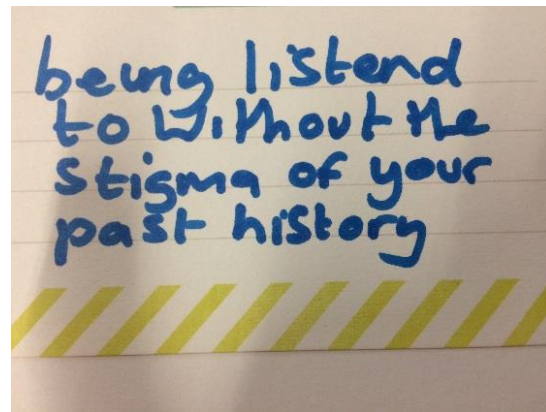 being listend
to without the
stigma of your
past history